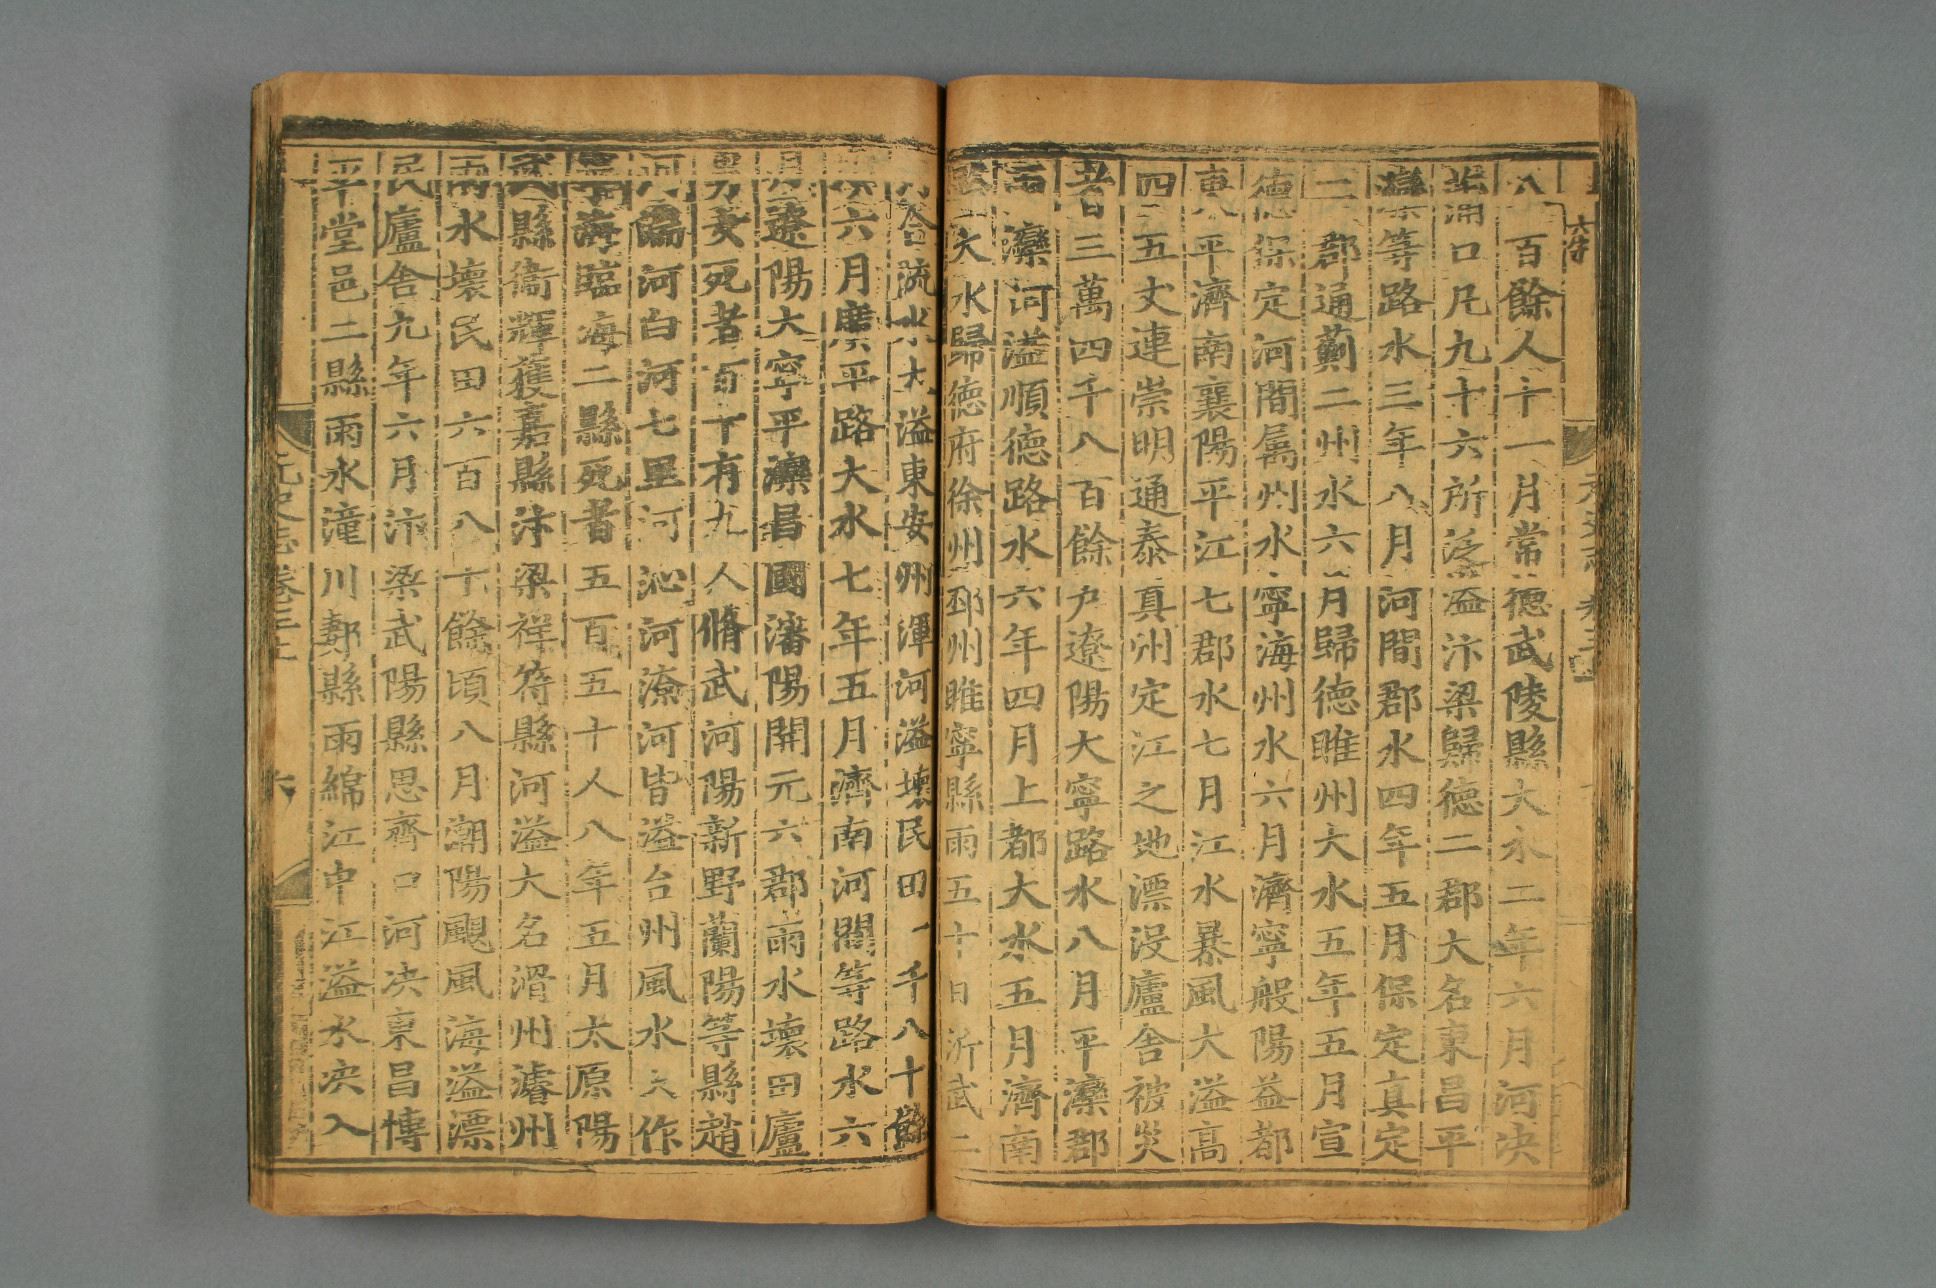 八百餘人十一月常德武陵縣大水二年六月河决
蒲口凡九十六所泛溢汴梁歸德二郡大名東昌平
灤等路水三年八月河間郡水四年五月保定真定
二郡通薊二州水六月歸德睢州大水五年五月宣
德保定河間属州水寧海州水六月濟寧般陽益都
東平濟南襄陽平江七郡水七月江水暴風大溢高
四五丈連崇明通泰真州定江之地漂没廬舍被災
者三萬四千八百餘户遼陽大寧路水八月平灤郡
雨灤河溢順德路水六年四月上都大水五月濟南
路大水歸德府徐州邳州睢寧縣雨五十日沂武二
河合流水大溢東安州渾河溢壞民田一千八十餘
頃六月廣平路大水七年五月濟南河間等路水六
月遼陽大寧平灤昌國瀋陽開元六郡雨水壞田廬
男女死者百十有九人脩武河陽新野蘭陽等縣趙
河湍河白河七里河沁河潦河皆溢台州風水大作
寧海臨海二縣死者五百五十人八年五月太原陽
武縣衛輝獲嘉縣汴梁祥符縣河溢大名滑州濬州
雨水壞民田六百八十餘頃八月潮陽颶風海溢漂
民廬舍九年六月汴梁武陽縣思齊口河决東昌博
平堂邑二縣雨水潼川郪縣雨綿江中江溢水决入
元史志卷三上
六